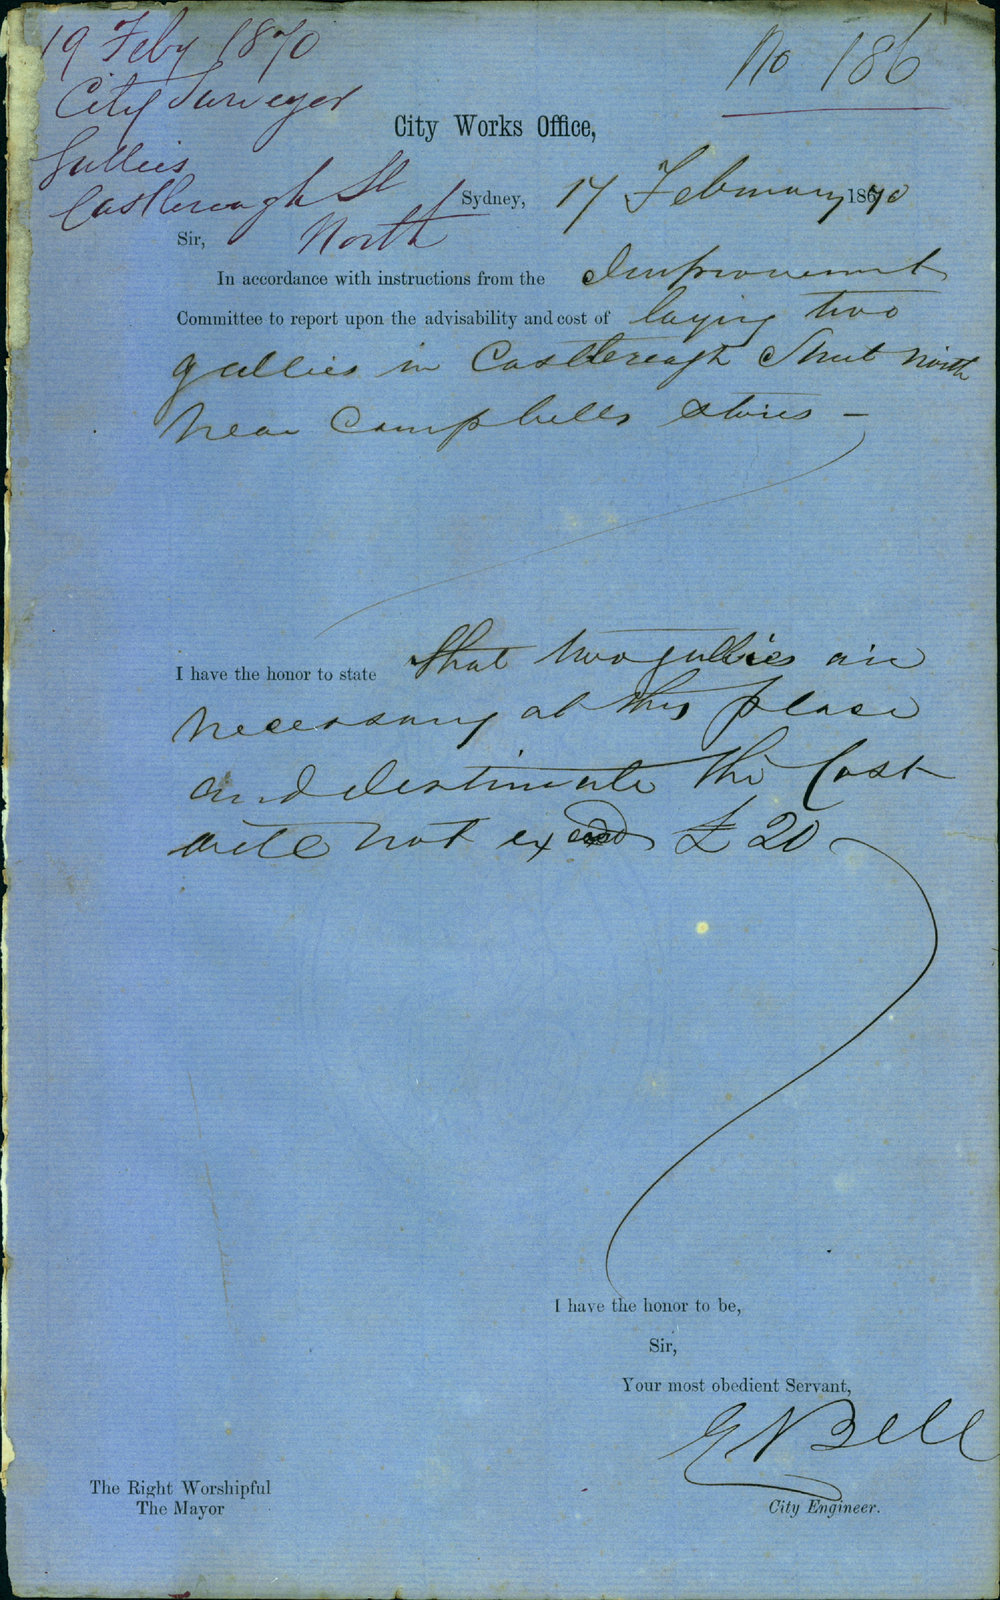 19 Feby 1870
No 186
City Surveyor
City Works Office,
Gullies
Castlereagh St
North
Sydney, 17 February 1870
Sir,
In accordance with instructions from the Improvement
Committee to report upon the advisability and cost of laying two
gullies in Castlereagh Street North
Near Campbells stores —
I have the honor to state that two gullies are
necessary at this place
and I estimate the Cost
will not exceed £20
I have the honor to be,
Sir,
Your most obedient Servant,
E Bell
The Right Worshipful
The Mayor
City Engineer.